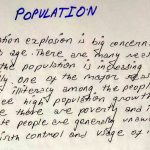 POPULATION
tion explosion is big concern
age. There are many reas
the population is increasing
ly one of the major reas
illiteracy among the people
high population growth
there are poverty and i
te people are generally unaw
irth control and usage of